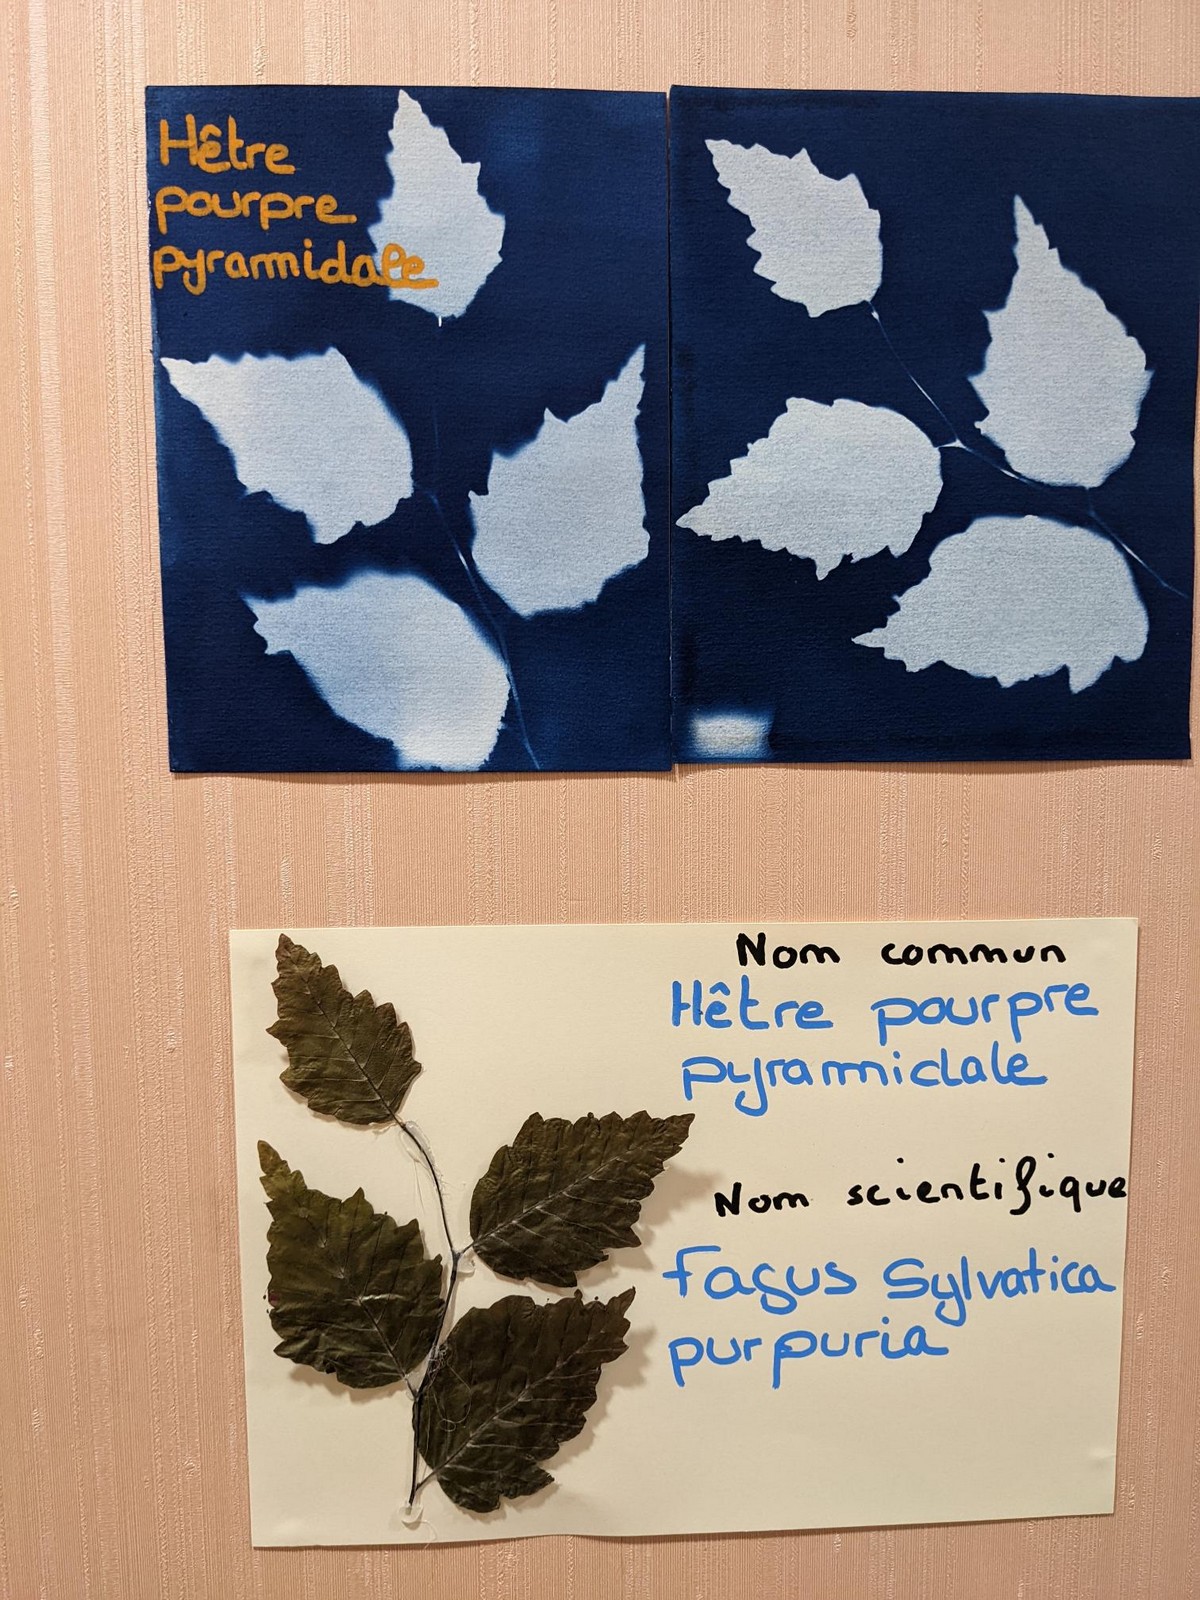 Hêtre
pourpre
pyramidale
Nom commun
Hêtre pourpre
pyramidale
Nom scientifique
Fagus Sylvatica
purpuria